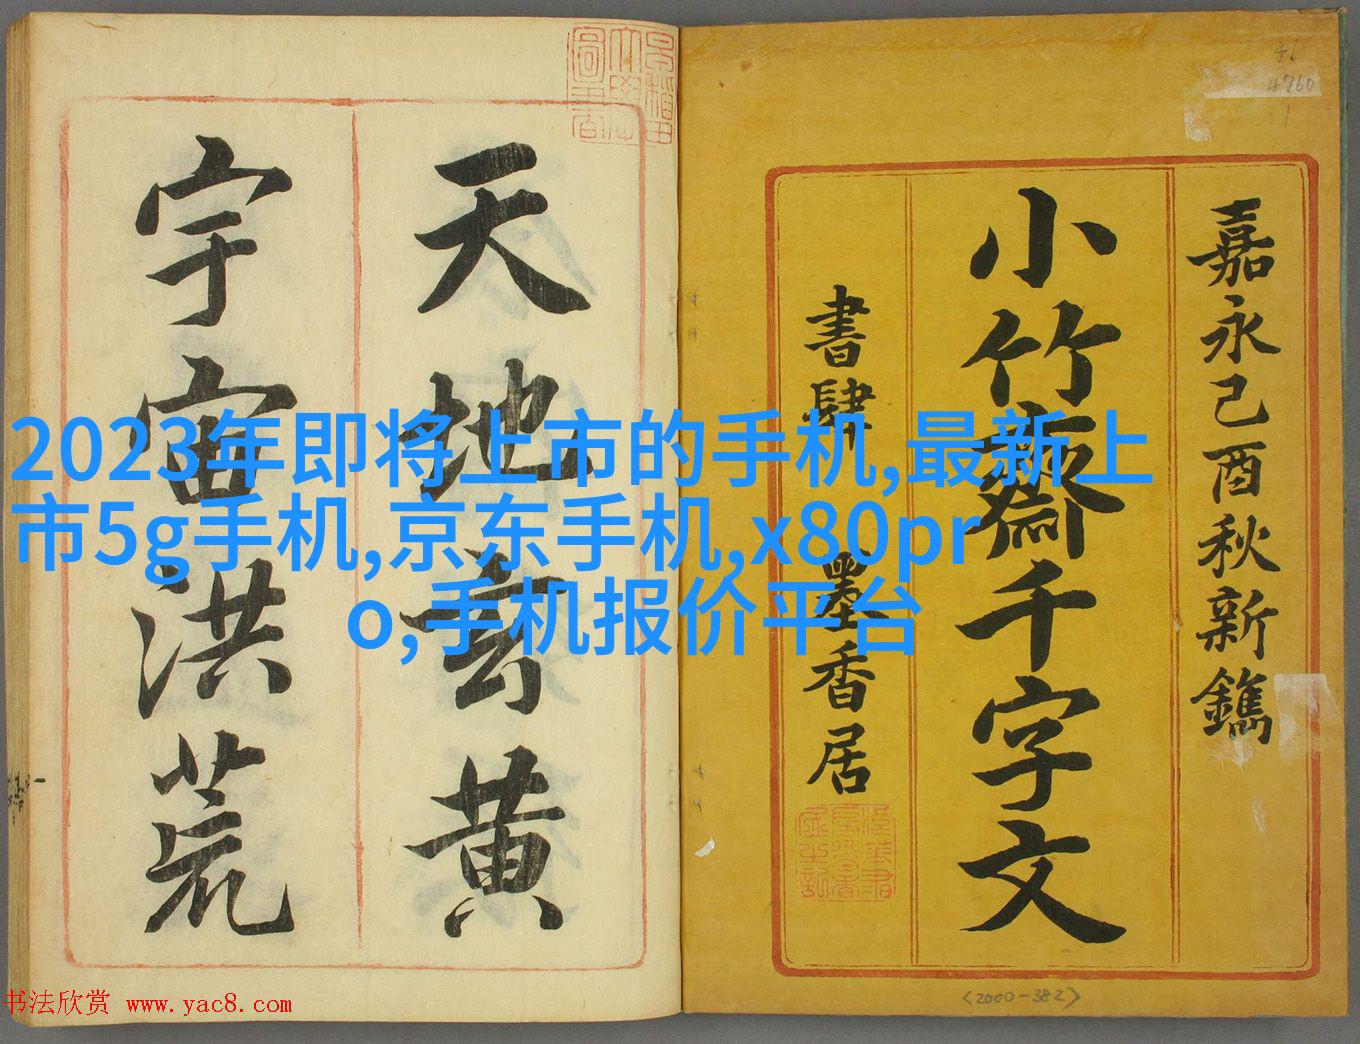 嘉永己酉秋新鐫
小竹齋千字文
書肆 墨香居
天地玄黄
宇宙洪荒
2023年即将上市的手机,最新上
市5g手机,京东手机,x80pr
o,手机报价平台
書法欣赏 www.yac8.com
<2000-382>
46
4760